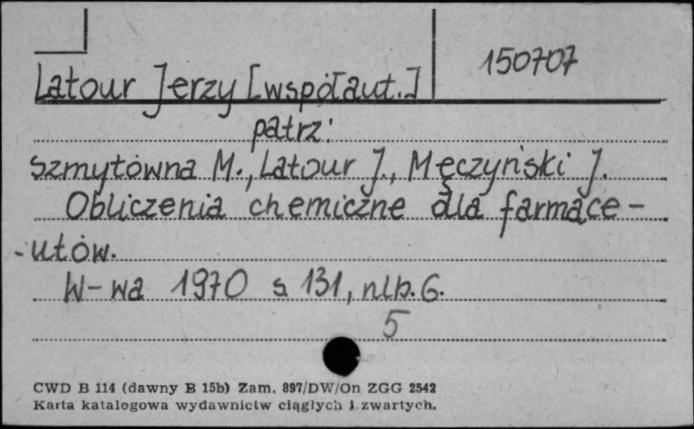 150707
Latour Jerzy [współaut.]
patrz:
Szmytówna M., Latour J., Męczyński J.
Obliczenia chemiczne dla farmace-
-utów.
W-wa 1970 s. 131, nlb. 6.
5
CWD B 114 (dawny B 15b) Zam. 897/DW/On ZGG 2542
Karta katalogowa wydawnictw ciągłych i zwartych.